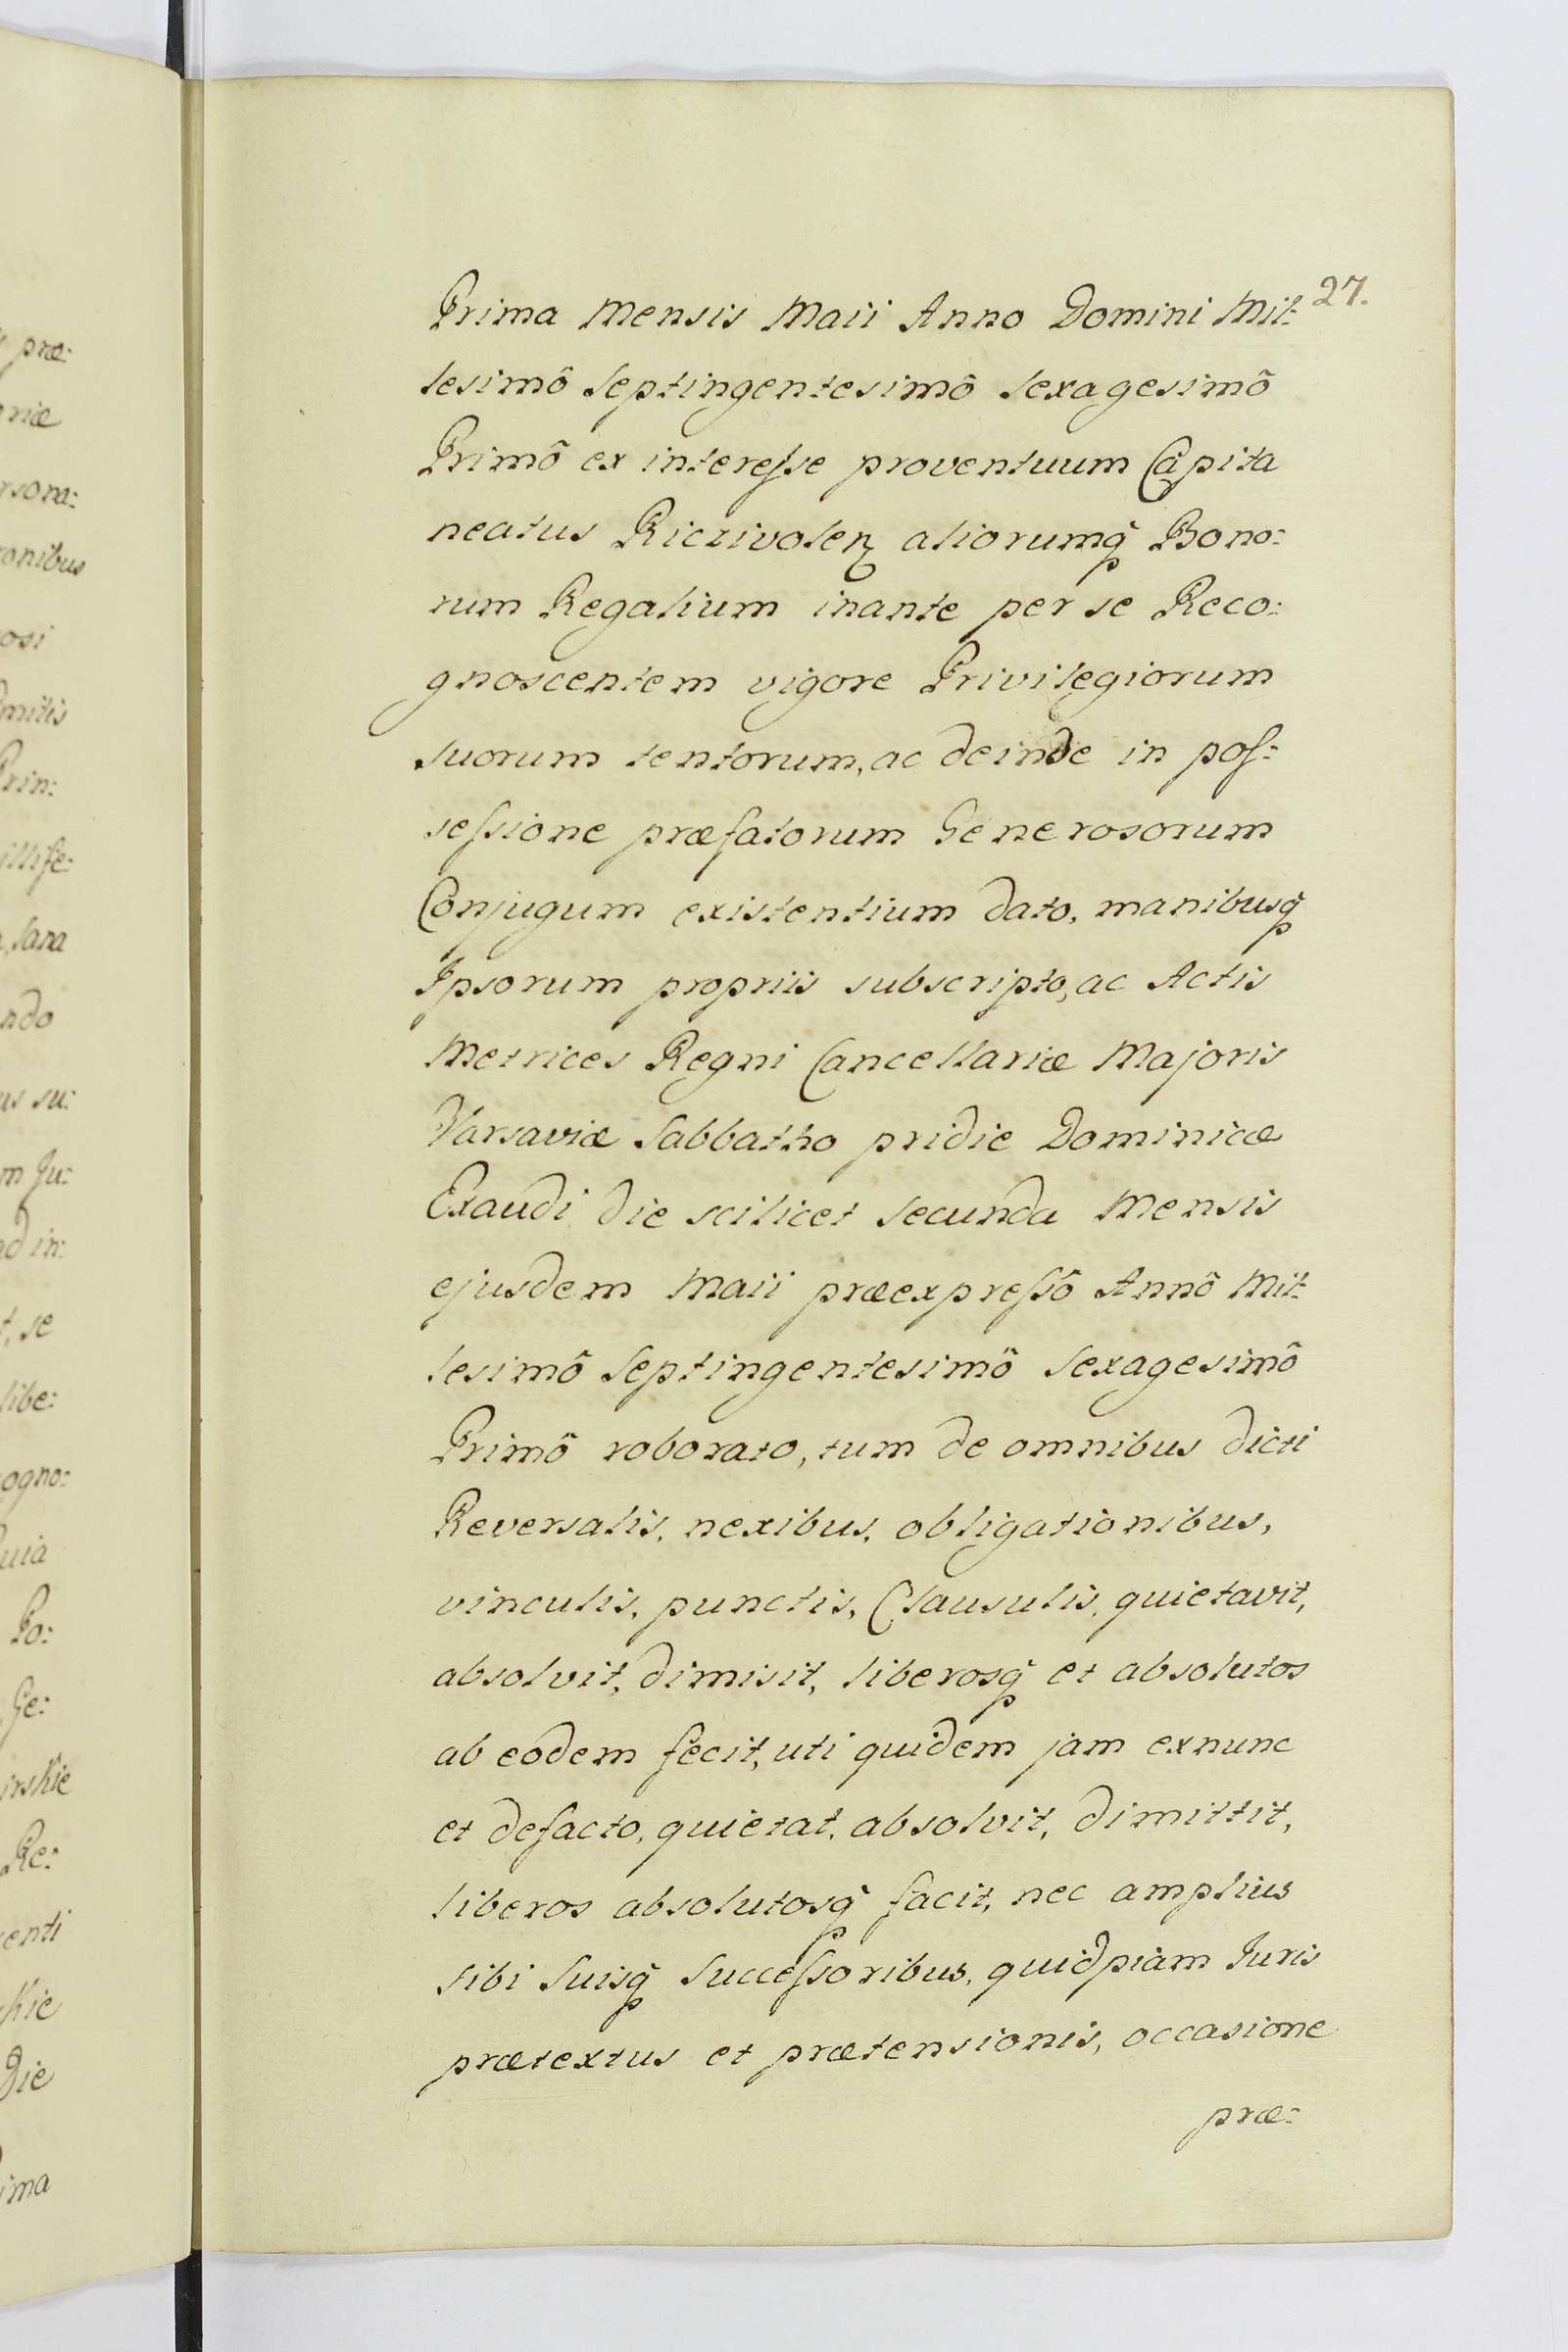 27.
Prima Mensis Maii Anno Domini Mil:
lesimô Septingentesimô Sexagesimô
Primô ex interesse proventuum Capita
neatus Riczivolen aliorumq̃ Bono:
rum Regalium inante per se Reco:
gnoscentem vigore Privilegiorum
suorum tentorum, ac deinde in pos:
sessione præfatorum Generosorum
Conjugum existentium dato, manibusq̃
Ipsorum propriis subscripto, ac Actis
Metrices Regni Cancellariæ Majoris
Varsaviæ Sabbatho pridie Dominicæ
Exaudi die scilicet secunda Mensis
ejusdem Maii præexpressô Annô Mil:
lesimô Septingentesimô Sexagesimô
Primô roborato, tum de omnibus dicti
Reversalis, nexibus, obligationibus,
vinculis, punctis, Clausulis, quietavit,
absolvit, dimisit, liberosq̃ et absolutos
ab eodem fecit, uti quidem jam exnunc
et defacto, quietat, absolvit, dimittit,
liberos absolutosq̃ facit, nec amplius
sibi Suisq̃ Successoribus, quidpiam Juris
prætextus et prætensionis, occasione
præ: